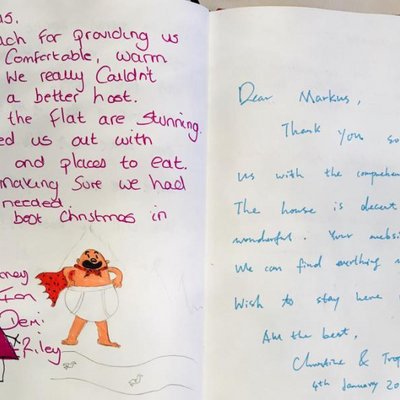 us.
ach for providing us
Comfortable, warm
We really Couldn't
a better host.
the Flat are stunning.
ed us out with
and places to eat.
making Sure we had
needed.
best Christmas in
ney
Ian
Demi
Riley
Dear Markus,
Thank you so
us with the comprehen
The house is decent
wonderful. Your websi
We can find everything
Wish to stay here
All the best,
Christine &
4th January 20